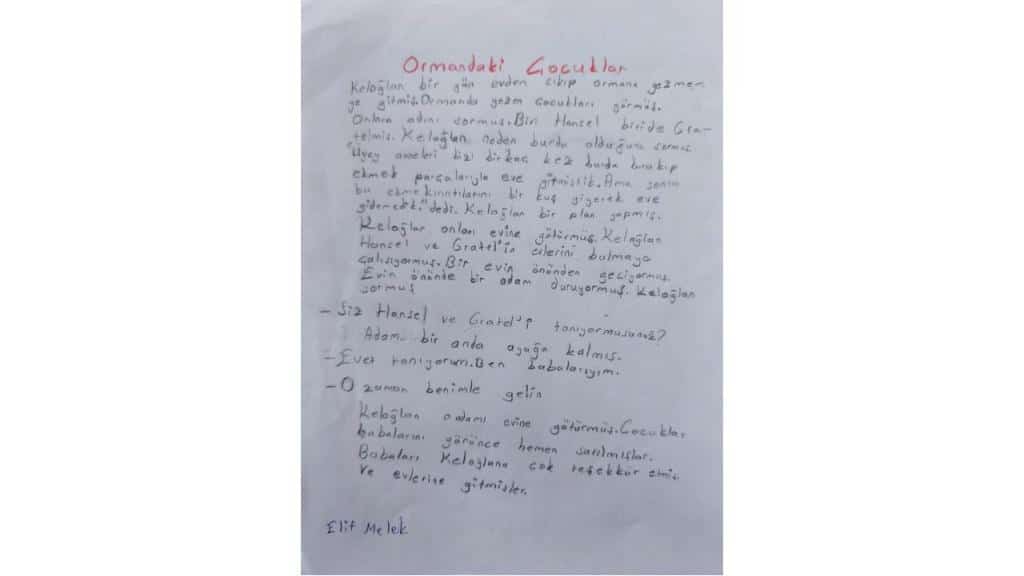 Ormandaki Çocuklar
Keloğlan bir gün evden çıkıp ormana gezmey
ye gitmiş.Ormanda gezen çocukları görmüş.
Onlara adını sormuş.Biri Hansel biride Gra-
telmiş. Keloğlan neden burda olduğunu sormuş
"Üvey anneleri bizi birkaç kez burda bırakıp
ekmek parçalarıyla eve gitmiştik.Ama sonra
bu ekmekırıntılarını bir kuş yiyerek eve
gidemedik."dedi. Keloğlan bir plan yapmış.
Keloğlan onları evine götürmüş.Keloğlan
Hansel ve Gratel'in evlerini bulmaya
çalışıyormuş.Bir evin önünden geçiyormuş.
Evin önünde bir adam duruyormuş. Keloğlan
sormuş
- Siz Hansel ve Gratel'i tanıyormusunuz?
Adam bir anda ayağa kalmış.
- Evet tanıyorum.Ben babalarıyım.
- O zaman benimle gelin
Keloğlan adamı evine götürmüş.Çocuklar
babalarını görünce hemen sarılmışlar.
Babaları Keloğlana çok teşekkür etmiş.
Ve evlerine gitmişler.
Elif Melek